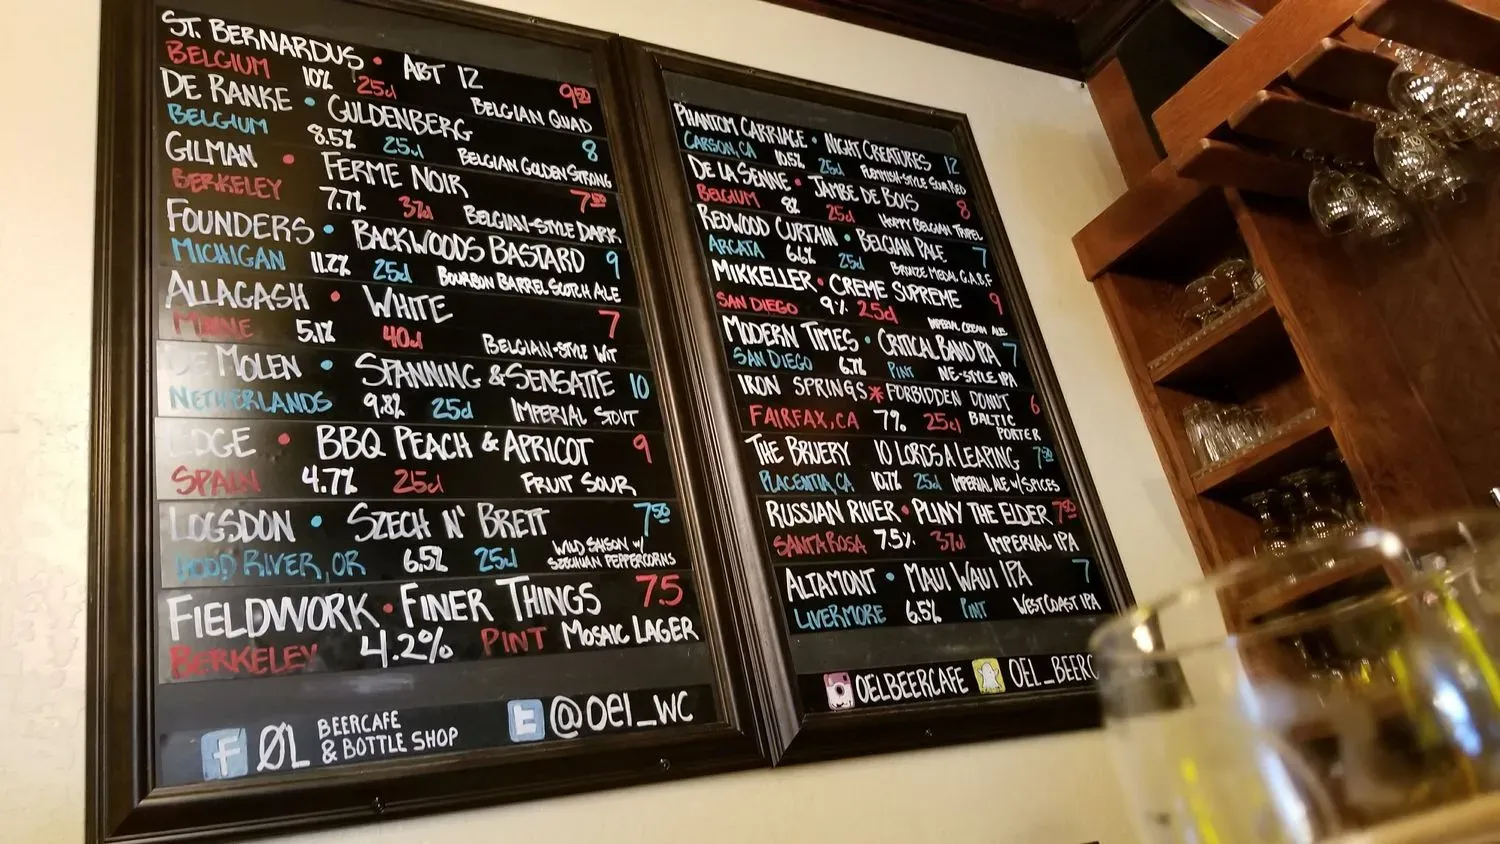 ST. BERNARDUS • ABT 12 9 50
BELGIUM 10% 25cl BELGIAN QUAD
DE RANKE • GULDENBERG 8
BELGIUM 8.5% 25cl BELGIAN GOLDEN STRONG
GILMAN • FERME NOIR 7 50
BERKELEY 7.7% 37cl BELGIAN-STYLE DARK
FOUNDERS • BACKWOODS BASTARD 9
MICHIGAN 11.2% 25cl BOURBON BARREL SCOTCH ALE
ALLAGASH • WHITE 7
MAINE 5.1% 40cl BELGIAN-STYLE WIT
DE MOLEN • SPANNING & SENSATIE 10
NETHERLANDS 9.8% 25cl IMPERIAL STOUT
EDGE • BBQ PEACH & APRICOT 9
SPAIN 4.7% 25cl FRUIT SOUR
LOGSDON • SZECH N' BRETT 7 50
HOOD RIVER, OR 6.5% 25cl WILD SAISON w/
SZECHUAN PEPPERCORNS
FIELDWORK • FINER THINGS 7.5
BERKELEY 4.2% PINT MOSAIC LAGER
f ØL BEERCAFE
& BOTTLE SHOP
t @OEL_WC
PHANTOM CARRIAGE • NIGHT CREATURES 12
CARSON, CA 10.5% 25cl FLEMMISH-STYLE SOUR RED
DE LA SENNE • JAMBE DE BOIS 8
BELGIUM 8% 25cl HOPPY BELGIAN TRIPEL
REDWOOD CURTAIN • BELGIAN PALE 7
ARCATA 6.6% 25cl BRONZE MEDAL G.A.B.F
MIKKELLER • CREME SUPREME 9
SAN DIEGO 9% 25cl IMPERIAL CREAM ALE
MODERN TIMES • CRITICAL BAND IPA 7
SAN DIEGO 6.7% PINT NE-STYLE IPA
IRON SPRINGS * FORBIDDEN DONUT 6
FAIRFAX, CA 7% 25cl BALTIC
PORTER
THE BRUERY 10 LORDS A LEAPING 7 50
PLACENTIA, CA 10.7% 25cl IMPERIAL ALE w/ SPICES
RUSSIAN RIVER • PLINY THE ELDER 7 50
SANTA ROSA 7.5% 37cl IMPERIAL IPA
ALTAMONT • MAUI WAUI IPA 7
LIVERMORE 6.5% PINT WEST COAST IPA
OELBEERCAFE OEL_BEERC